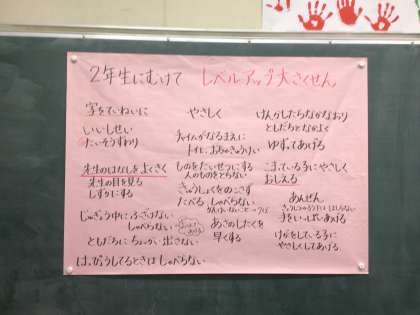 2年生にむけて レベルアップ大さくせん
字をていねいに
いいしせい
たいそうずわり
先生のはなしをよくきく
先生の目を見る
しずかにする
じゅぎょう中にふざけない
しゃべらない
ともだちに ちょっかい出さない
はっぴょうしてるときは しゃべらない
やさしく
チャイムがなるまえに
トイレ、おちゃきゅうけい
ものをたいせつにする
人のものをとらない
きゅうしょくをのこさず
たべる しゃべらない
あさのしたくを
早くする
けんかしたらなかなおり
ともだちとなかよく
ゆずってあげる
こまっている子にやさしく
おしえる
あんぜん
手をいっぱいあげる
けがをしている子に
やさしくしてあげる